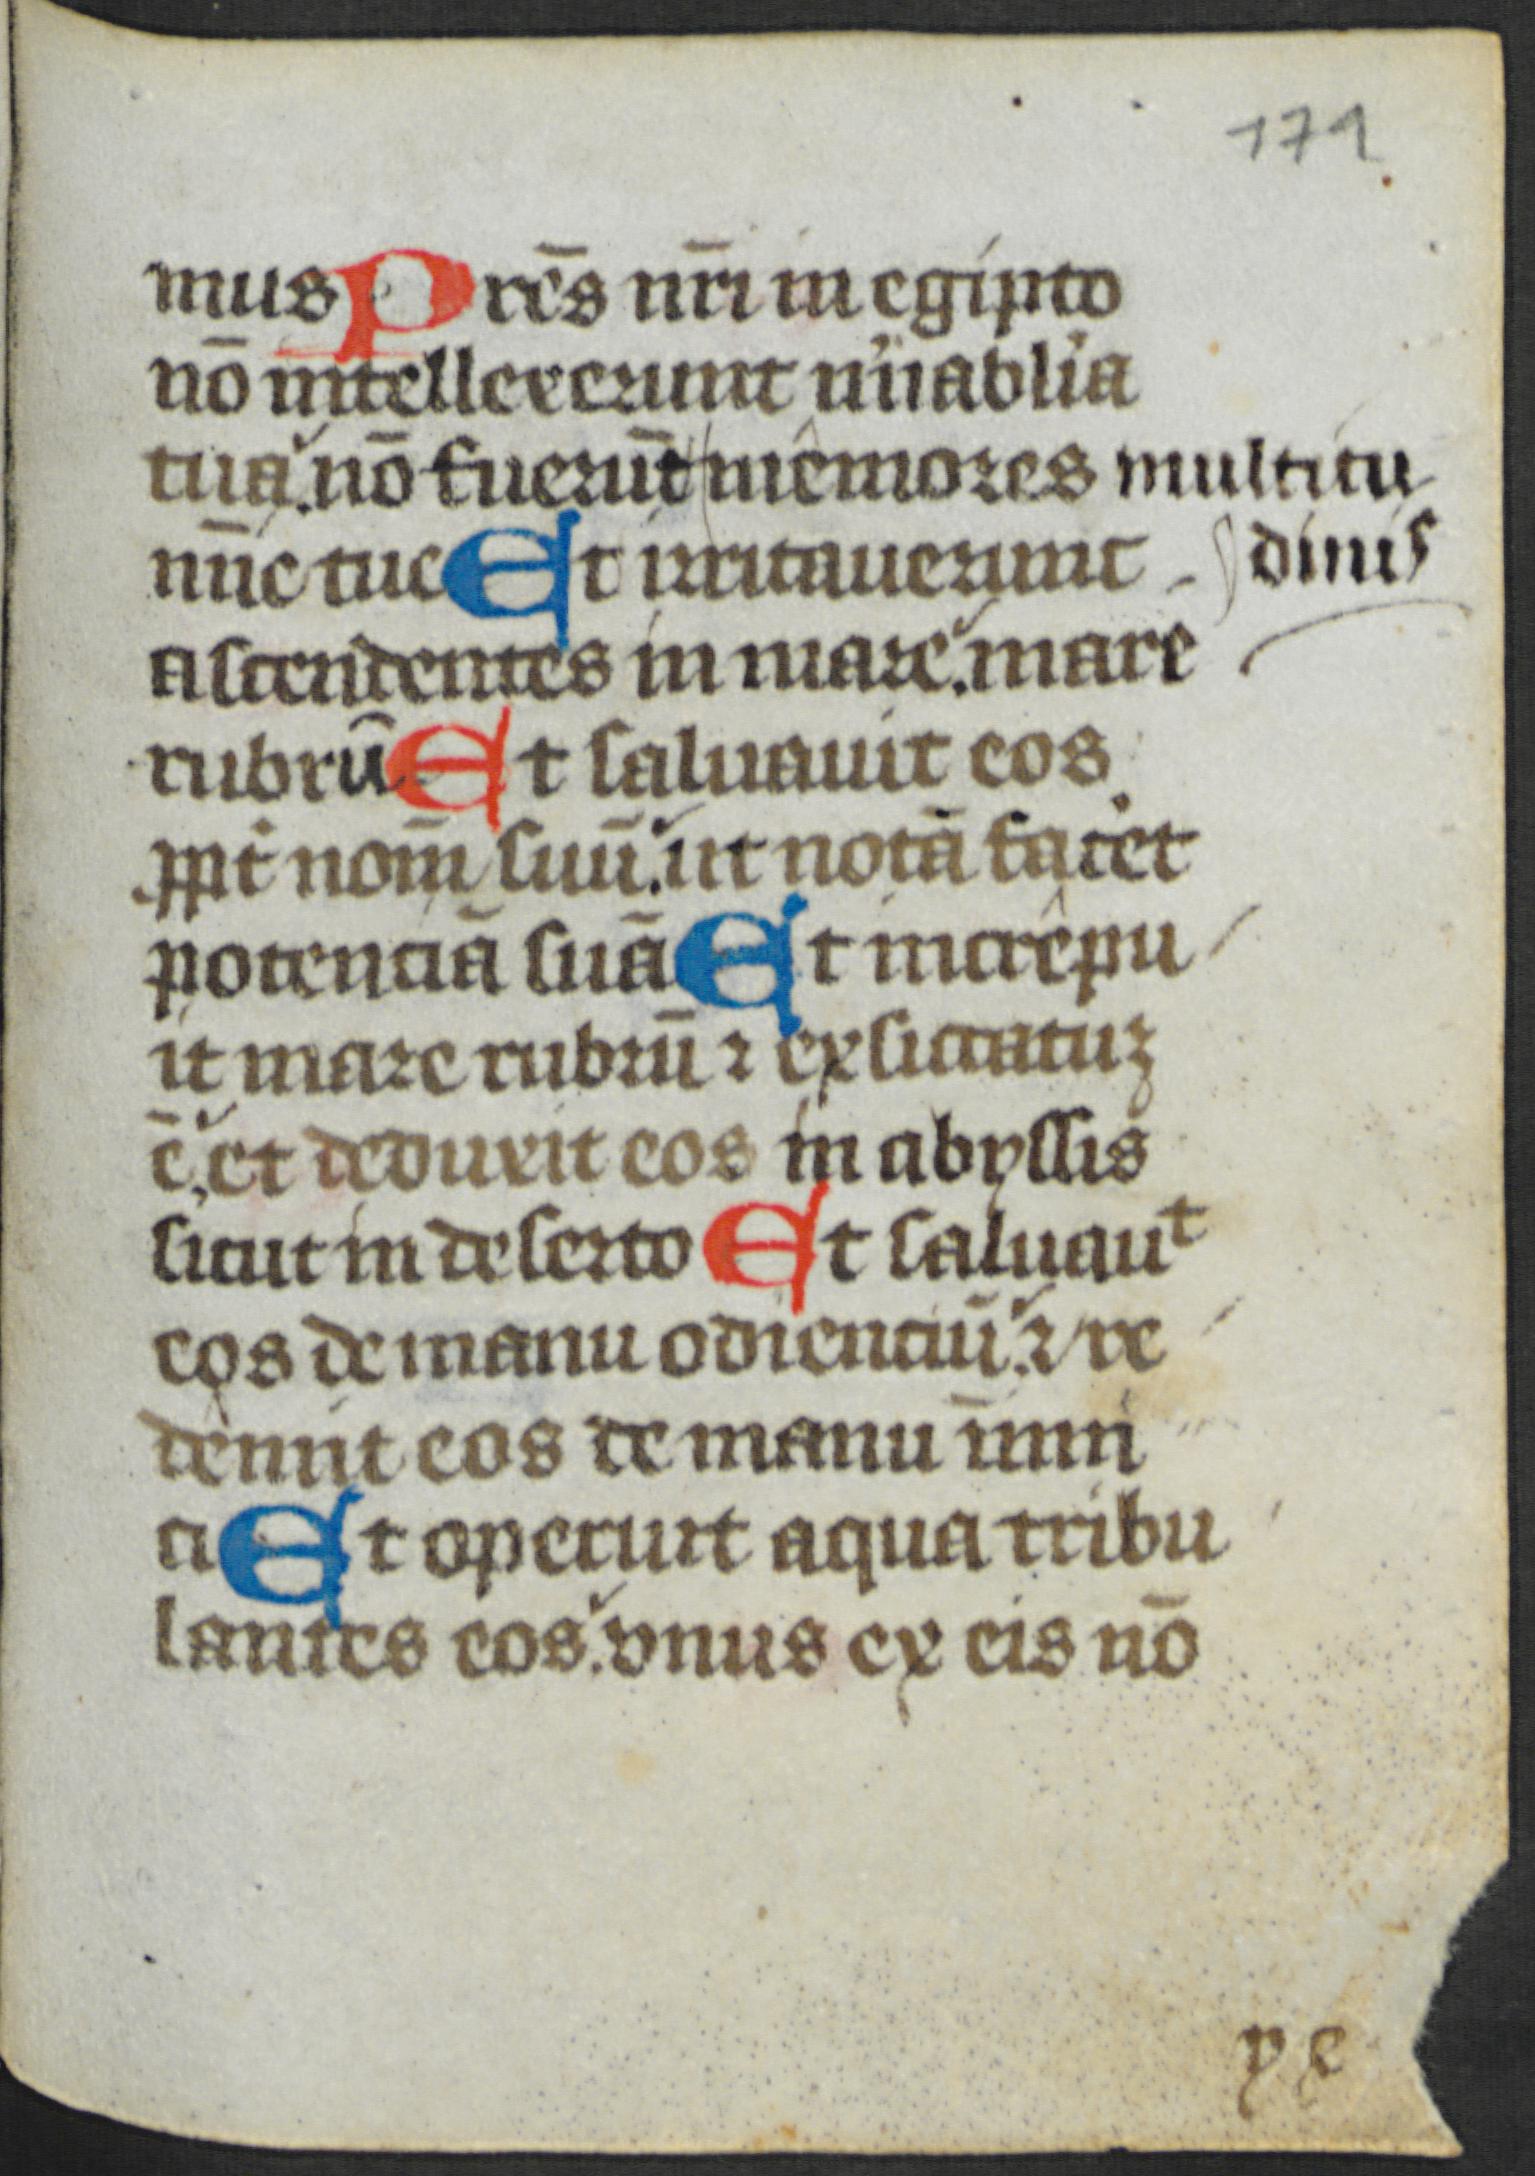 171
mus Prēs nr̄i in egipto
nō intellexerunt mirablia
tua. nō fuerūt memores multitu
mīe tue Et irritauerunt dinis
ascendentes in mare. mare
rubrū Et saluauit eos
ppt nom̄ suū. ut notā facet
potenciā suā Et increpu
it mare rubrū ⁊ exsiccatuꝫ
ē, et deduxit eos in abyssis
sicut in deserto Et saluauᵗ
eos de manu odienciū. ⁊ re
demit eos de manu inim̄
ci Et operuit aqua tribu
lantes eos. vnus ex eis nō